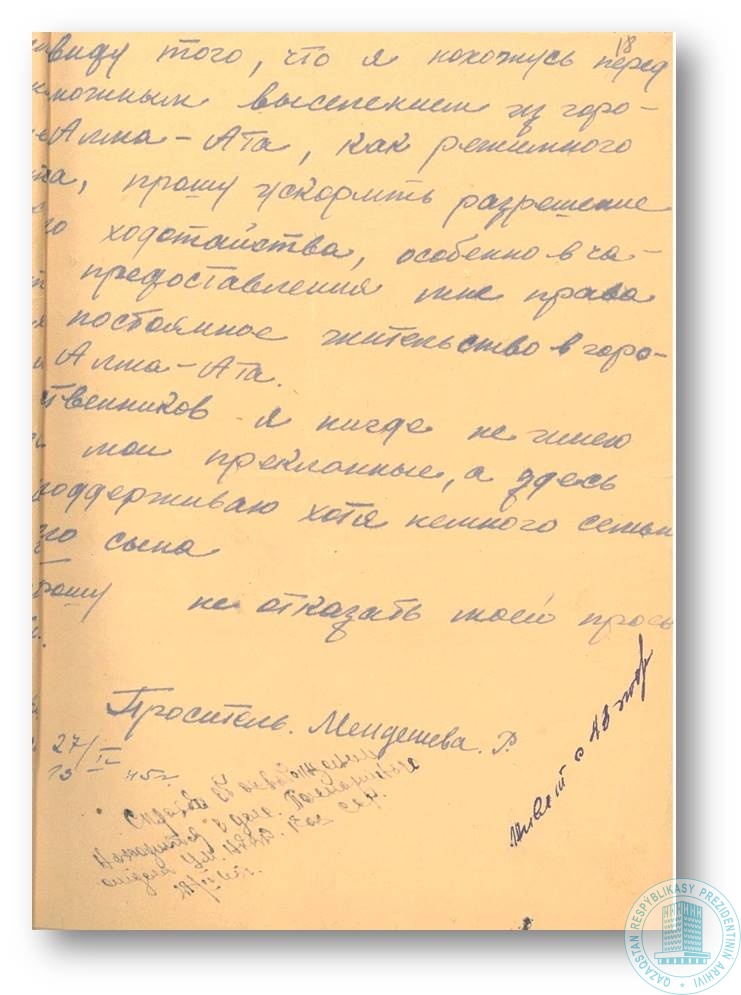 18
виду того, что я нохожусь перед
можным выселением из горо-
Алма-Ата, как режимного
та, прошу ускорить разрешение
го ходотайства, особенно в ча-
предоставления мне права
постоянное жительство в горо-
Алма-Ата.
твенников я нигде не имею
мои преклонные, а здесь
поддерживаю хотя немного семьи
го сына
прошу не отказать моей прось
Проситель. Мендешева. Р
27/IV
13 45г
Справка об освобождении
находится в деле
отдела НКВД. Каз ССР.
живет с 43 года
QAZAQSTAN RESPÝBLIKASY PREZIDENTINIŃ ARHIVI